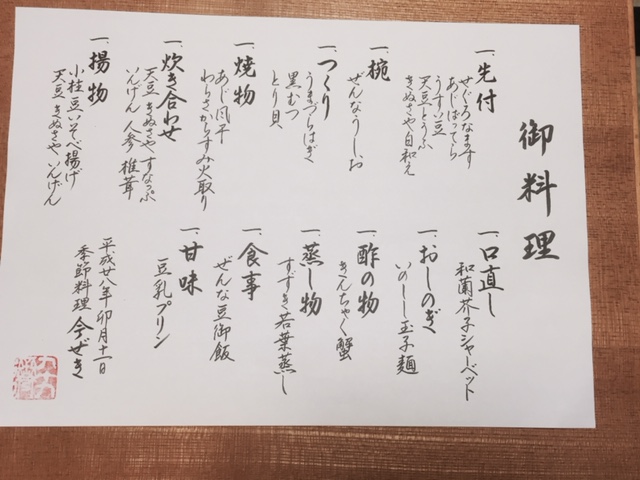 御料理
一、先付
せぐろなます
あじばってら
うすい豆
天豆とうふ
きぬさや白和え
一、椀
ぜんなうしお
一、つくり
うまづらはぎ
黒むつ
とり貝
一、焼物
あじ風干
わらさからすみ火取り
一、炊き合わせ
天豆 きぬさや すなっぷ
いんげん 人参 椎茸
一、揚物
小柱 豆いそべ揚げ
天豆 きぬさや いんげん
一、口直し
和蘭芥子シャーベット
一、おしのぎ
いのしし玉子麺
一、酢の物
きんちゃく蟹
一、蒸し物
すずき若葉蒸し
一、食事
ぜんな豆御飯
一、甘味
豆乳プリン
平成廿八年 卯月十一日
季節料理 今ぜき